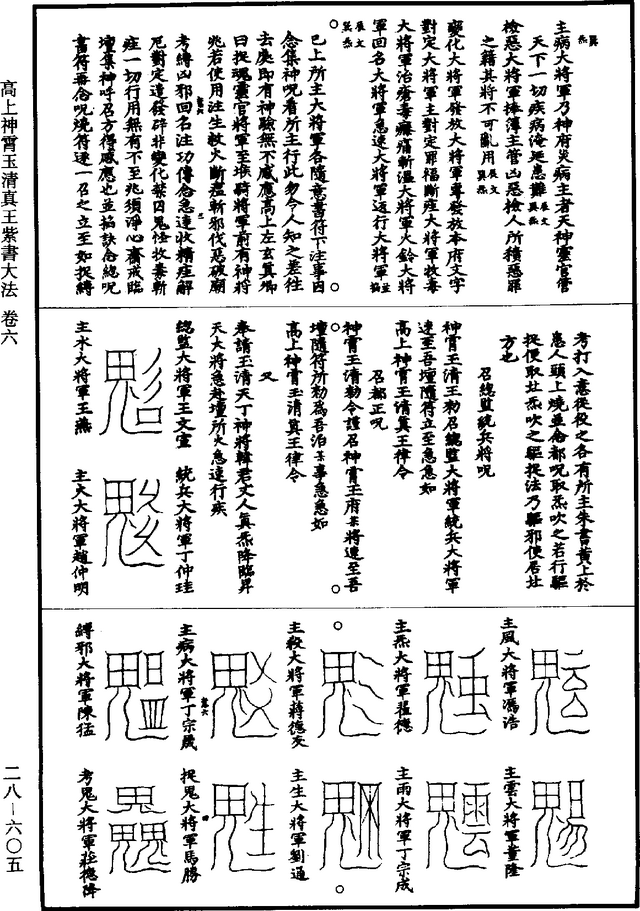 高上神霄玉清真王紫書大法 卷六
二八—六〇五
主病大將軍乃神府炎病主者天神靈官管
天下一切疾病淹延患難
檢惡大將軍捧簿主管凶惡檢人所積惡罪
之籍其將不可亂用
變化大將軍發放大將軍專發放本府文字
對定大將軍主對定罪福斷瘧大將軍收毒
大將軍治瘡毒癰痛斬瘟大將軍火鈴大將
軍回名大將軍急速大將軍迅行大將軍
已上所主大將軍各隨意書符下注事因
念集神呪看所主行此勿令人知之差往
去處即有神驗無不感應高上左玄真卿
曰捉魂靈官將軍至堠騎將軍前有神將
兆若使用注生救火斷瘟斬邪伐惡破廟
考縛凶邪回名注功傳念急速收精瘧解
厄對定造發碎非變化禁囚鬼怪收毒斬
瘧一切行用無有不至兆須淨心齋戒臨
壇集神呼召方得感應也並掐訣念總呪
書符再念呪燒符速一召之立至如捉縛
考打入意從役之各有所主朱書黃上於
患人頭上燒並念都呪取炁吹之若行驅
捉便取灶炁吹之驅捉法乃驅邪使居灶
方也
召總監統兵將呪
神霄玉清王勑召總監大將軍統兵大將軍
速至吾壇隨符立至急急如
高上神霄玉清真王律令
召都正呪
神霄玉清勑令謹召神霄玉府某將速至吾
壇隨符所勑爲吾治某事急急如
高上神霄玉清真王律令
又
奉請玉清天丁神將韓君丈人真炁降臨昇
天大將急赴壇所火急速行疾
總監大將軍王文宣 統兵大將軍丁仲珪
主水大將軍王燕 主火大將軍趙仲明
主風大將軍馮浩 主雲大將軍董隆
主炁大將軍翟德 主雨大將軍丁宗成
主殺大將軍蔣德友 主生大將軍劉通
主病大將軍丁宗晟 捉鬼大將軍馬勝
縛邪大將軍陳猛 考鬼大將軍莊德降